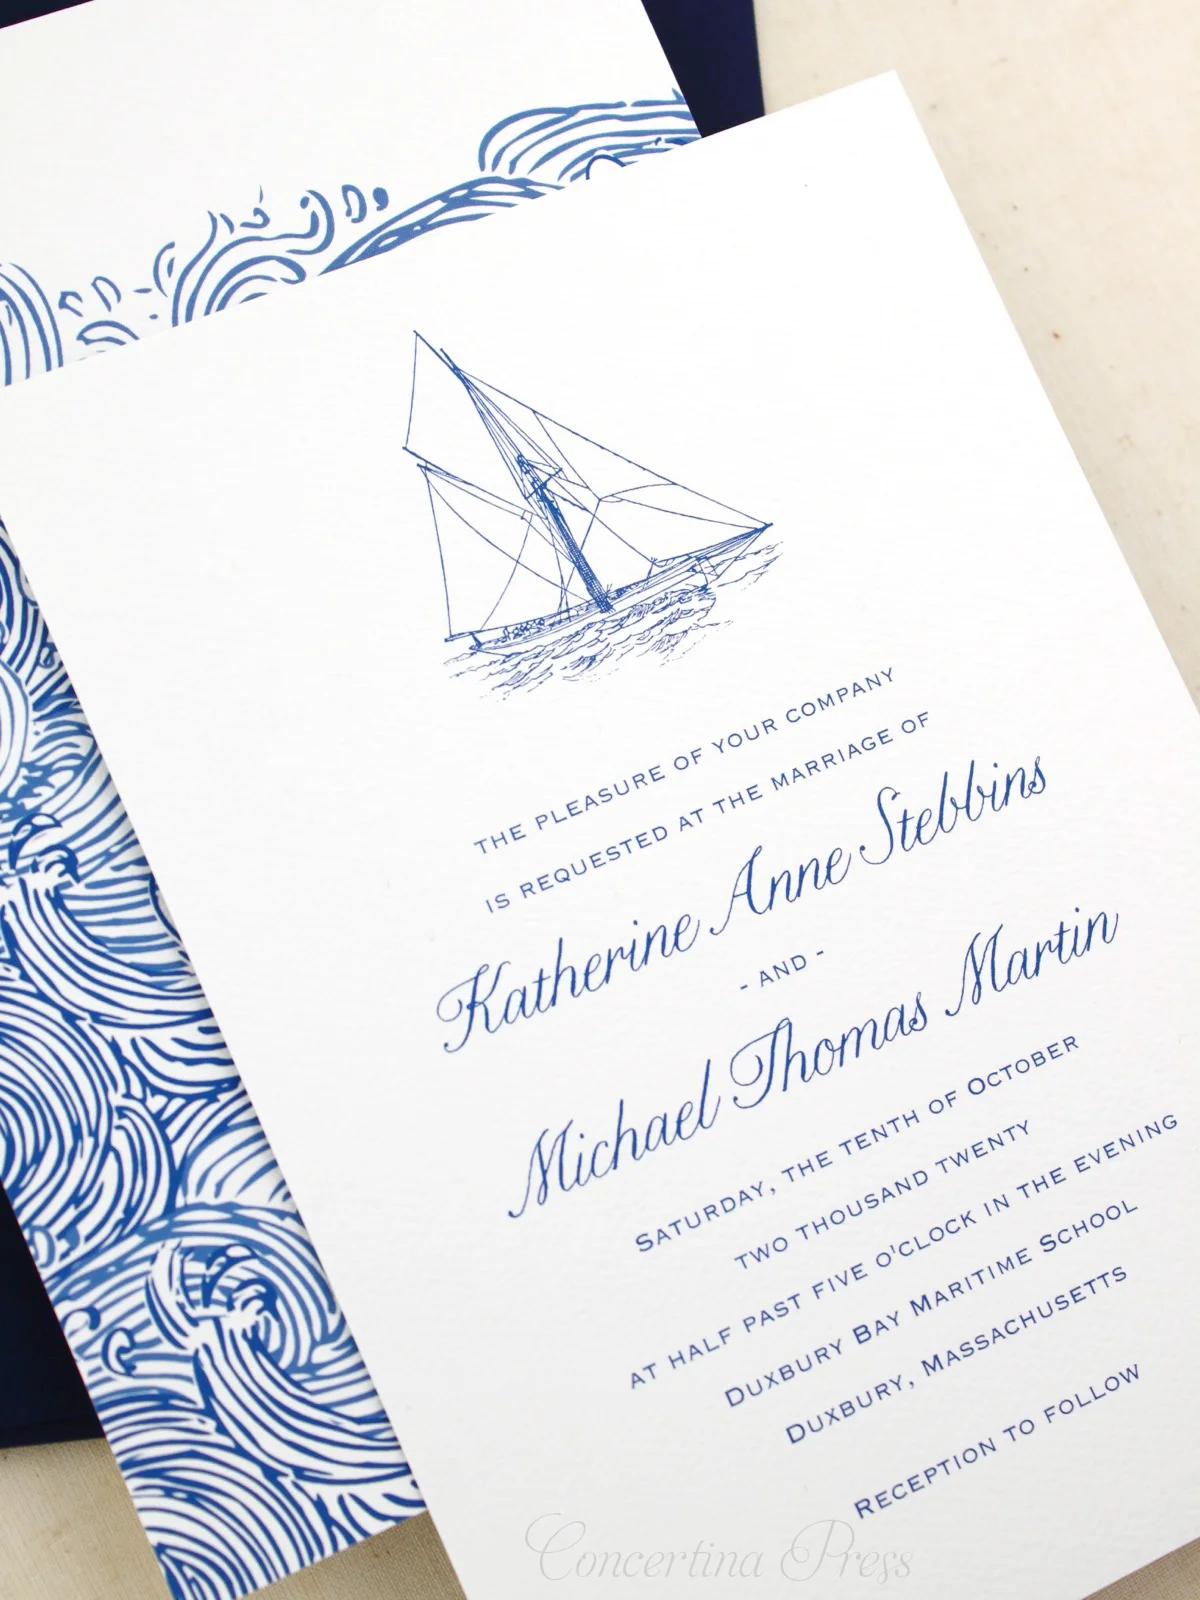 THE PLEASURE OF YOUR COMPANY
IS REQUESTED AT THE MARRIAGE OF
Katherine Anne Stebbins
- AND -
Michael Thomas Martin
SATURDAY, THE TENTH OF OCTOBER
TWO THOUSAND TWENTY
AT HALF PAST FIVE O'CLOCK IN THE EVENING
DUXBURY BAY MARITIME SCHOOL
DUXBURY, MASSACHUSETTS
RECEPTION TO FOLLOW
Concertina Press